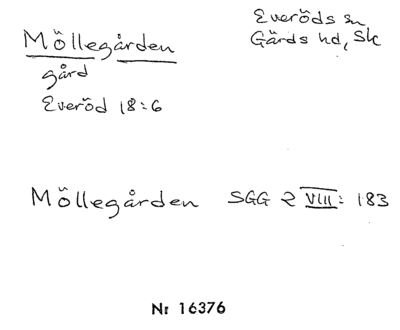 Möllegården
gård
Everöd 18:6
Everöds sn
Gärds hd, Sk
Möllegården SGG 2 VIII: 183
Nr 16376